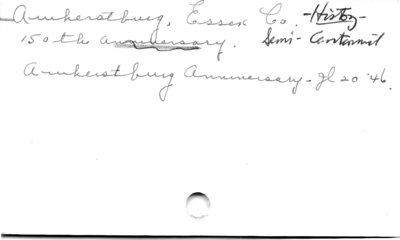 Amherstburg, Essex Co. -History-
150th anniversary. Semi-Centennial
Amherstburg Anniversary - Jl 20 '46.